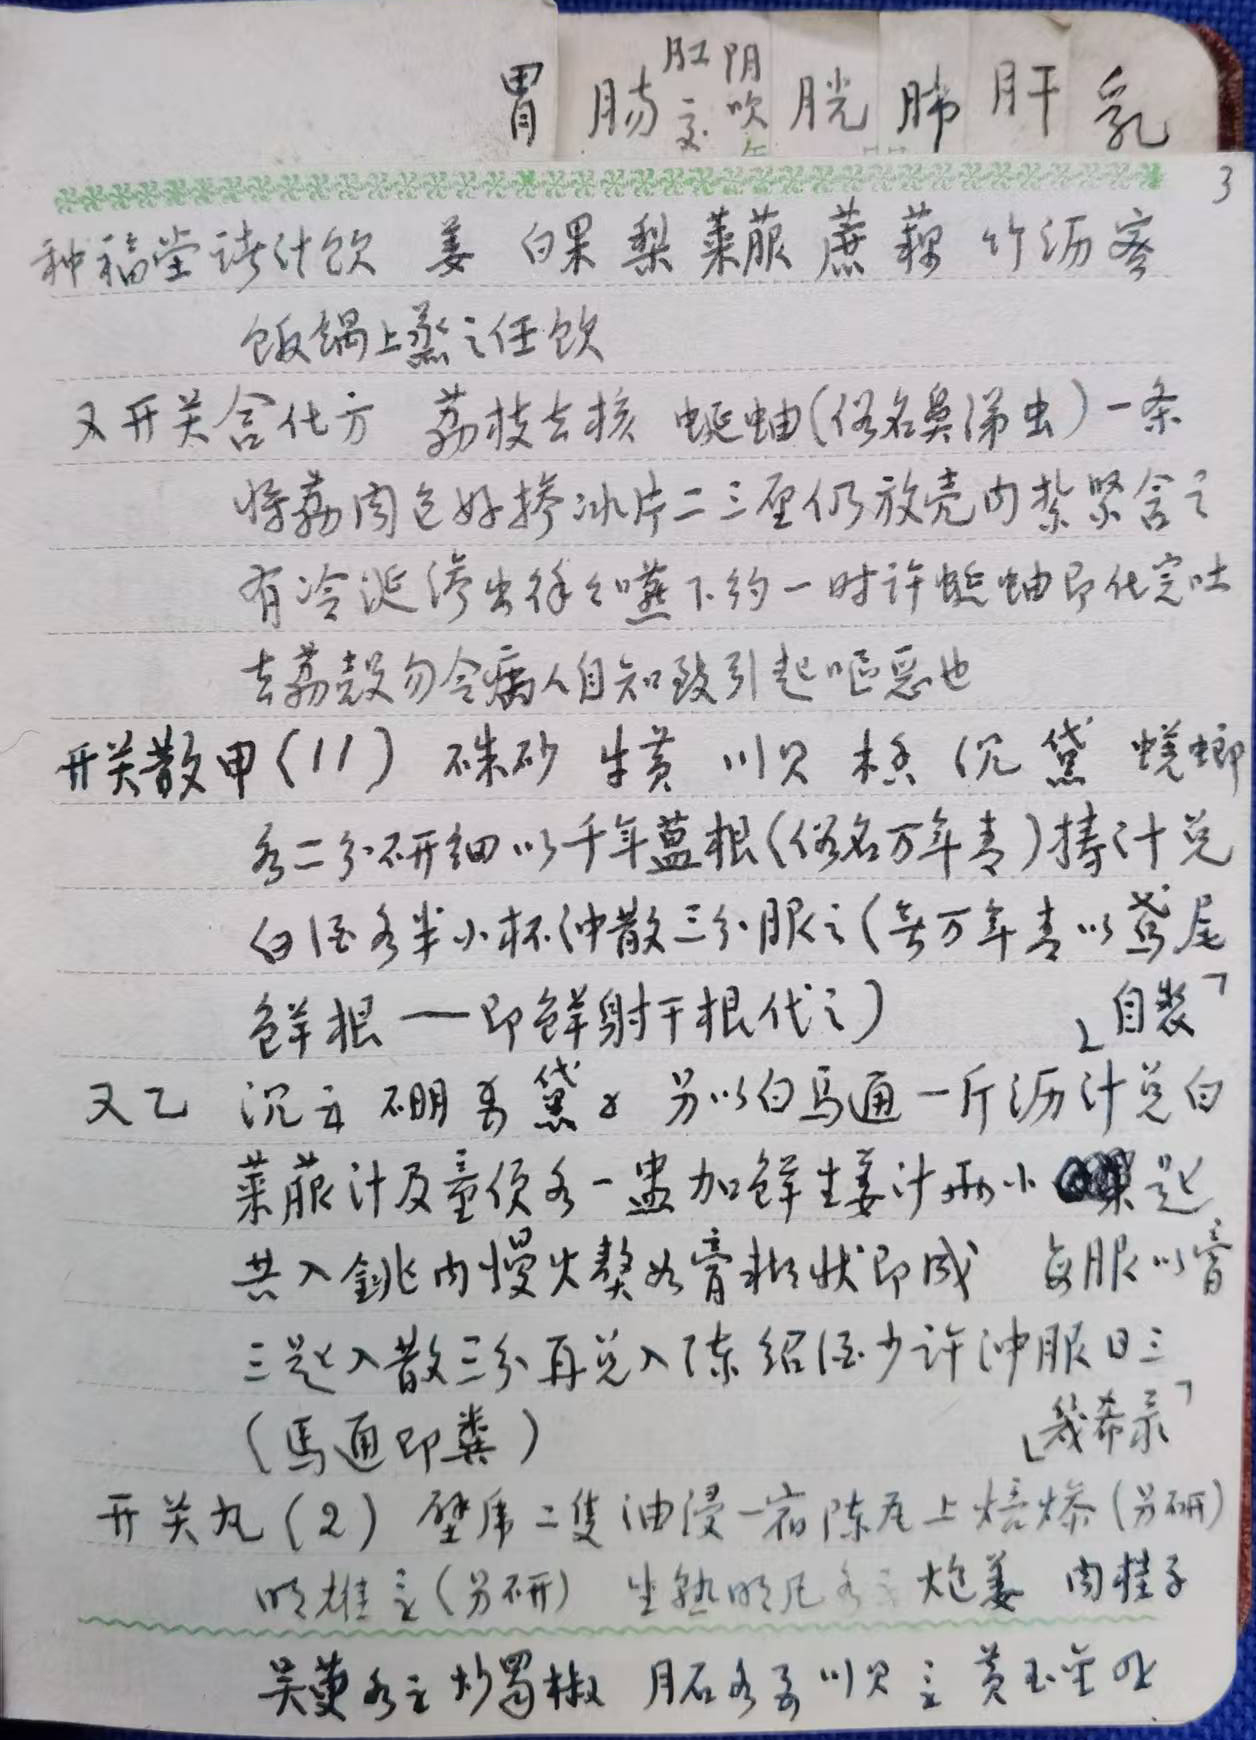 胃 肠 肛 阴吹 胱 肺 肝 乳
3
种福堂诸汁饮 姜 白果 梨 莱菔 蔗 藕 竹沥 蜜
饭锅上蒸之任饮
又开关含化方 荔枝去核 蜒蚰(俗名鼻涕虫)一条
将荔肉包好掺冰片二三厘仍放壳内扎紧含之
有冷涎渗出徐々嚥下约一时许蜒蚰即化完吐
去荔殼勿令病人自知致引起呕恶也
开关散甲(11) 硃砂 牛黄 川贝 木香 沉 黛 蜣螂
各二分研细以千年蒀根(俗名万年青)捣汁兑
白酒各半小杯冲散三分服之(无万年青以鸢尾
鲜根——即鲜射干根代之)
「自製」
又乙 沉 硼 黛 另以白馬通一斤沥汁兑白
莱菔汁及童便各一盅加鲜生姜汁两小匙
共入銚内慢火熬如膏糊状即成 每服以膏
三匙入散三分再兑入陈绍酒少许冲服日三
(馬通即粪)
「幾希录」
开关丸(2) 壁虎二隻油浸一宿陈瓦上焙燥(另研)
明雄(另研) 生熟明矾各 炮姜 肉桂子
吴萸各 炒蜀椒 月石各 川贝 黄玉金